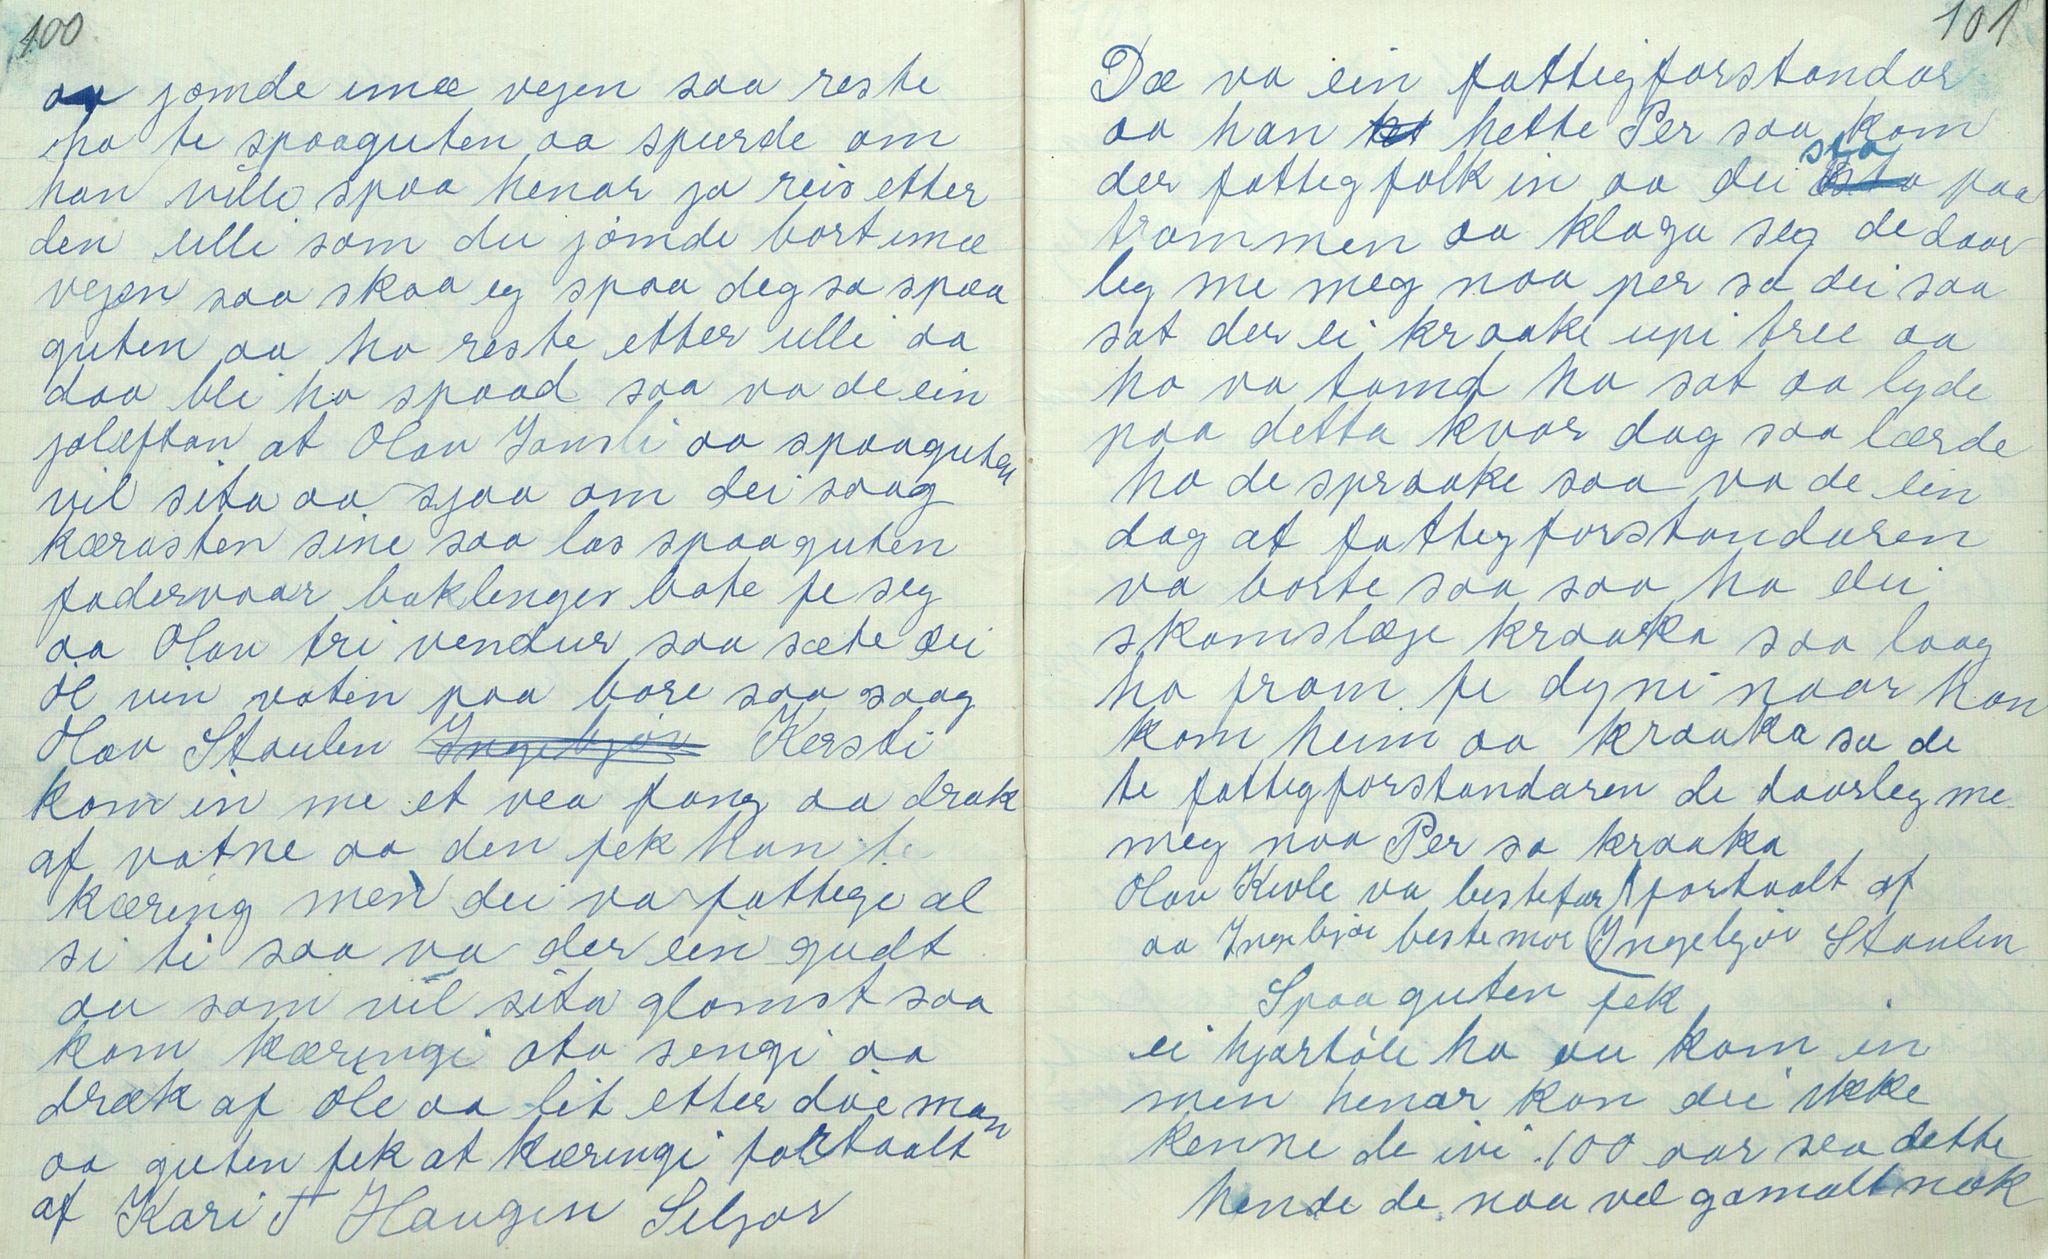 100
aa jømde imæ vejen saa reste
ho te spaaguten aa spurde om
han ville spaa henar ja reis etter
den ulli som du jømde bort imæ
vejen saa skaa eg spaa deg sa spaa
guten aa ho reste etter ulli aa
daa blei ho spaad saa va de ein
jolæftan at Olav Jønsli aa spaaguten
vil sita aa sjaa om dei saag
kærasten sine saa las spaaguten
fadervaar baklenges bate fe seg
aa Olav tri vendur saa sæte dei
øl vin vaten paa bore saa saag
Olav Staulen Ingebjør Kersti
kom in me et vea fang aa drak
af vatne aa den fek han te
kæring men dei va fattige al
si ti saa va der ein gudt
au som vil sita glømst saa
kom kæringi ata sengi aa
dræk af øle aa lit etter døe man
aa guten fek at kæringi fortaalt
af Kari T Haugen Seljor
101
Dæ va ein fattigforstandar
aa han het hette Per saa kom
sto
der fattigfolk in aa dei sto paa
trammen aa klaga seg de daar
leg me meg naa per sa dei saa
sat der ei kraake upi tree aa
ho va tamd ho sat aa lyde
paa detta kvar dag saa lærde
ho de spraake saa va de ein
dag at fattigforstandaren
va borte saa saa ho ei
skamslæje kraaka saa laag
ho fram fe dyni naar han
kom heim aa kraaka sa de
te fattigforstandaren de daarleg me
meg naa Per sa kraaka
Olav Kivle va bestefar fortaalt af
aa Ingebjør bestemor Ingebjør Staulen
Spaaguten fek
ei hjartøle ho au kom in
men henar kan dei ikke
kenne de ivi 100 aar sea dette
hende de naa vel gamalt nok